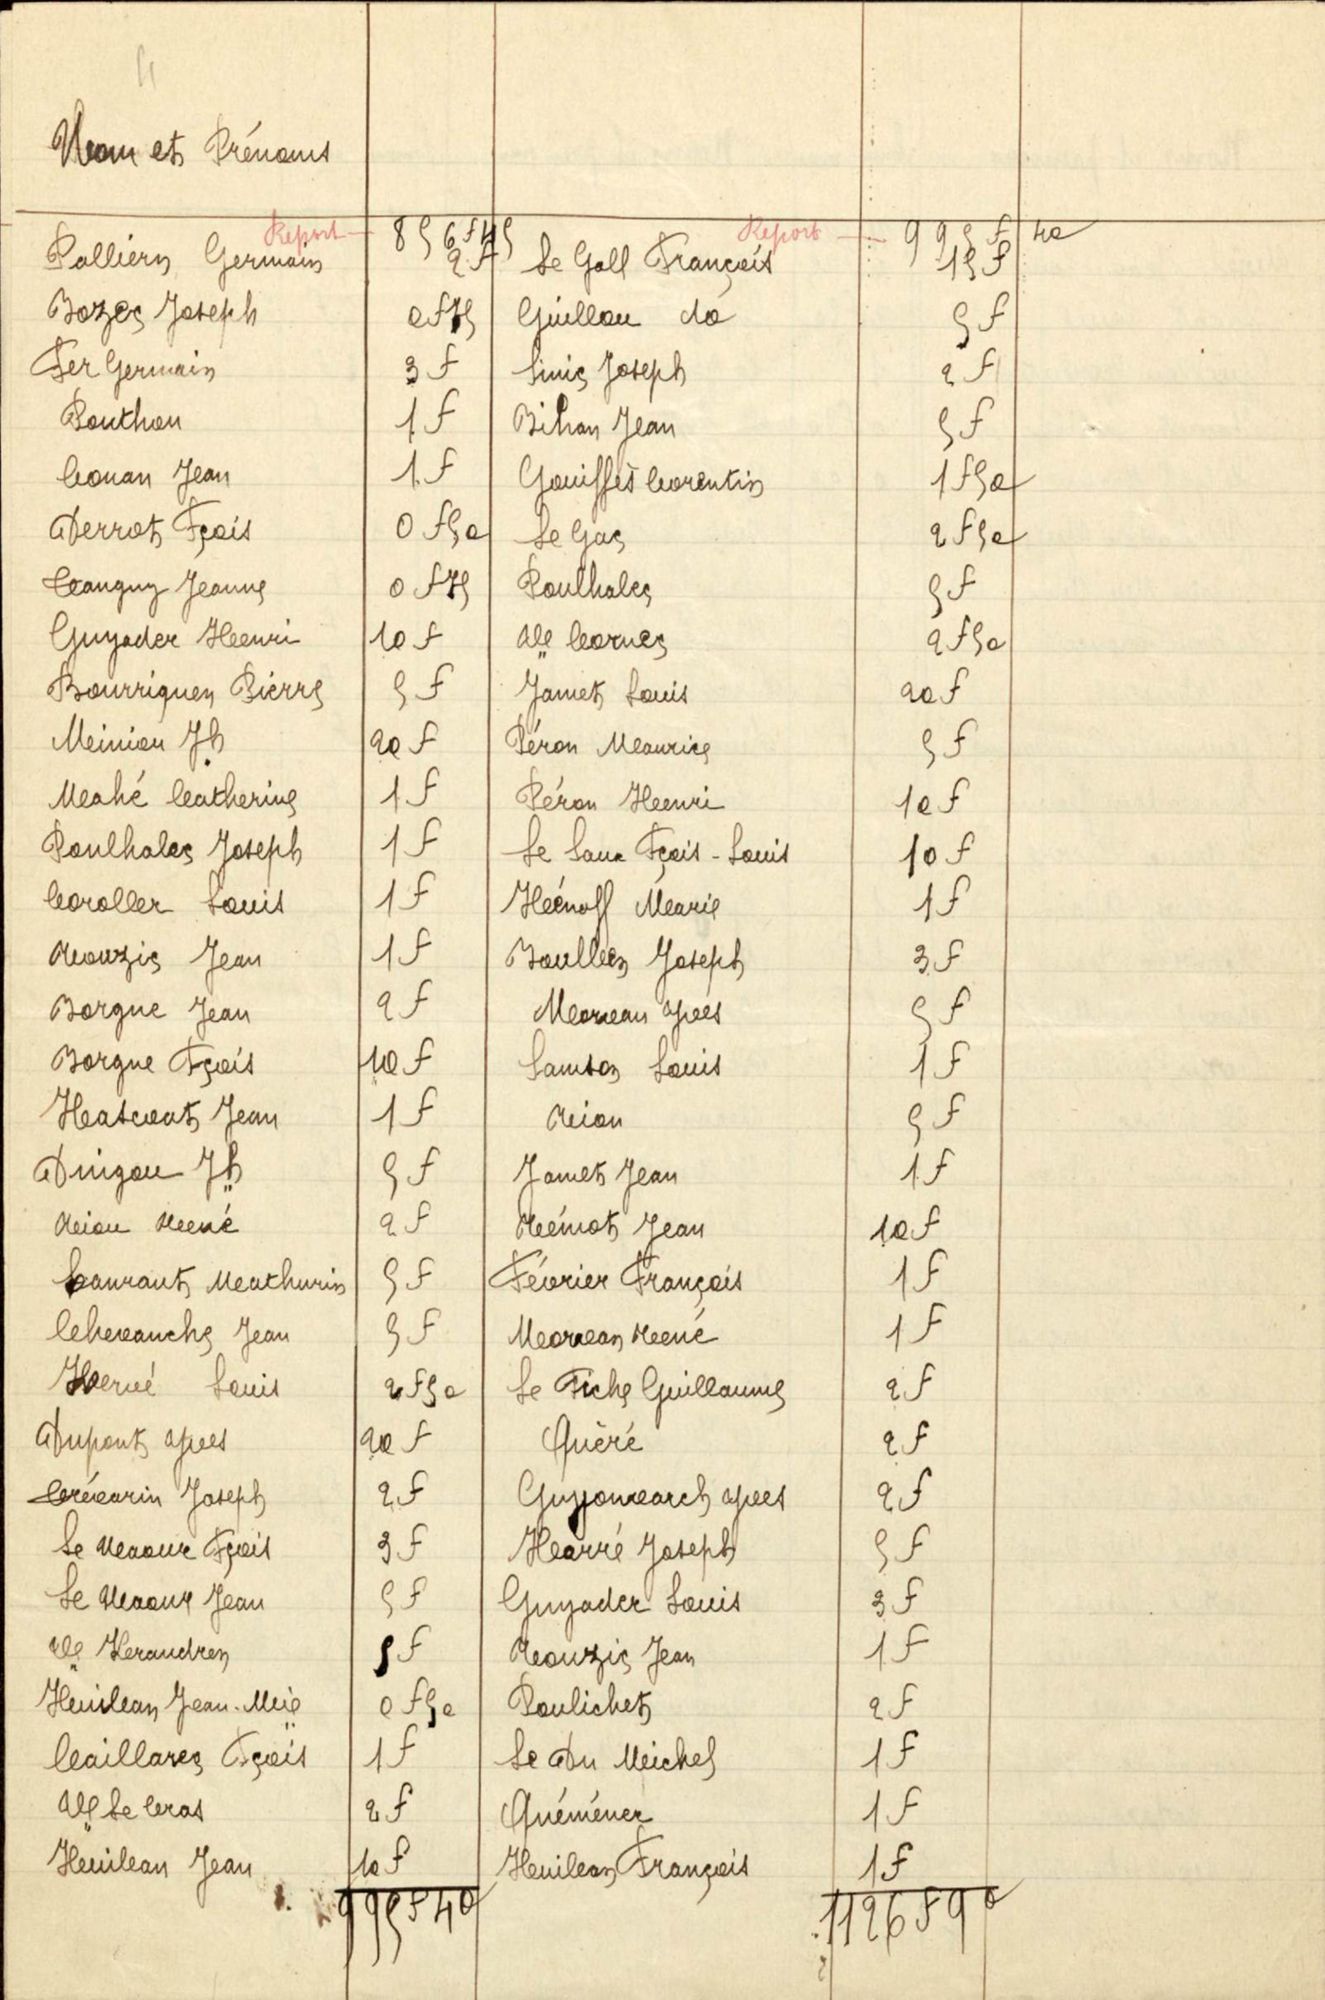 Nom et Prénoms
Report 856f45
Palliern Germain 2f
Bozec Joseph 0f75
Fer Germain 3f
Pouthon 1f
Conan Jean 1f
Derrot Fçois 0f50
Tanguy Jeanne 0f75
Guyader Henri 10f
Bourriquen Pierre 5f
Miniou Jh 20f
Mahé Catherine 1f
Poulhalec Joseph 1f
Coroller Louis 1f
Rouzic Jean 1f
Borgne Jean 2f
Borgne Fçois 10f
Hascoat Jean 1f
Drigou Jh 5f
Riou René 2f
Laurant Mathurin 5f
Chevanche Jean 5f
Hervé Louis 2f50
Dupont Yves 20f
Crécarin Joseph 2f
Le Naour Fçois 3f
Le Naour Jean 5f
Vve Keraudren 5f
Huilean Jean-Mie 0f50
Caillarec Fçois 1f
Vve Le Cras 2f
Huilean Jean 10f
995f40
Report 995f40
Le Gall François 15f
Guillou do 5f
Sinic Joseph 2f
Bihan Jean 5f
Gouiffès Corentin 1f50
Le Gac 2f50
Poulhalec 5f
Vve Cornec 2f50
Jamet Louis 20f
Péron Maurice 5f
Péron Henri 10f
Le Saux Fçois-Louis 10f
Hénaff Marie 1f
Baullen Joseph 3f
Morvan Yves 5f
Samson Louis 1f
Riou 5f
Jamet Jean 1f
Rémot Jean 10f
Février François 1f
Morvan René 1f
Le Fiche Guillaume 2f
Quéré 2f
Guyonvarch Yves 2f
Harré Joseph 5f
Guyader Louis 3f
Rouzic Jean 1f
Poulichet 2f
Le Du Michel 1f
Quéméner 1f
Huilean François 1f
1126f90